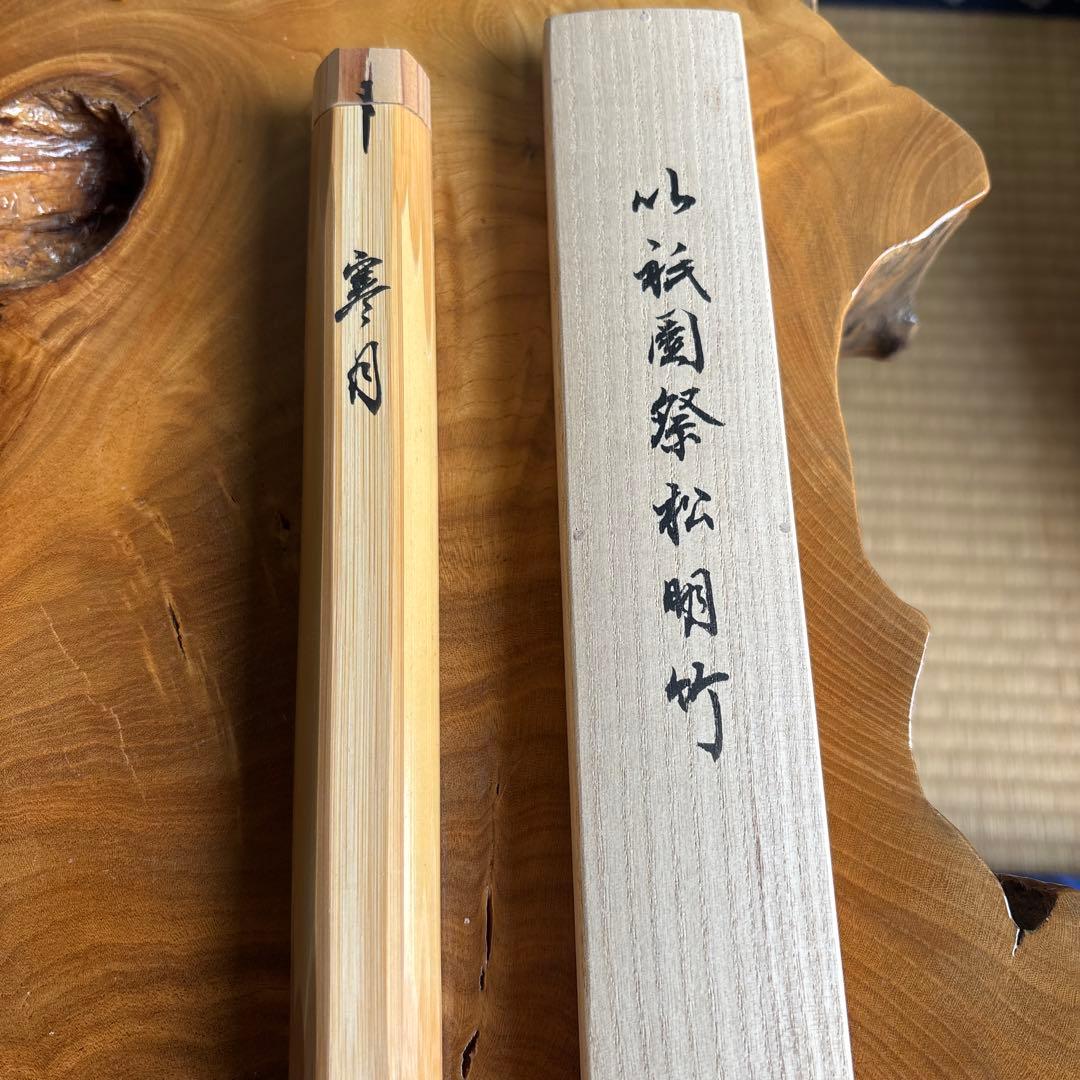 寒月
以祇園祭松明竹